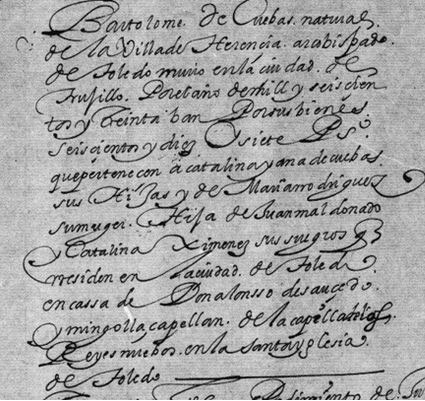 Bartolome. de Cuebas. natural.
de la Villa de Herencia. arcobispado.
de Toledo murio en la ciudad. de
Trujillo. Por el año de mill y seis cien
tos y treinta ban Por sus bienes.
seiscientos y diez O siete Ps.
que pertenecen a catalina y ana de cuebas.
sus Hijas y de Maria rrodriguez
su muger. Hija de Juan maldonado
y Catalina Ximenez sus suegros q
rresiden en la ciudad. de Toledo.
en cassa de Don alonsso de saucedo.
y mingolla capellan. de la capilla de los
Reyes nuebos. en la santa yglesia.
de Toledo
Pedimiento de